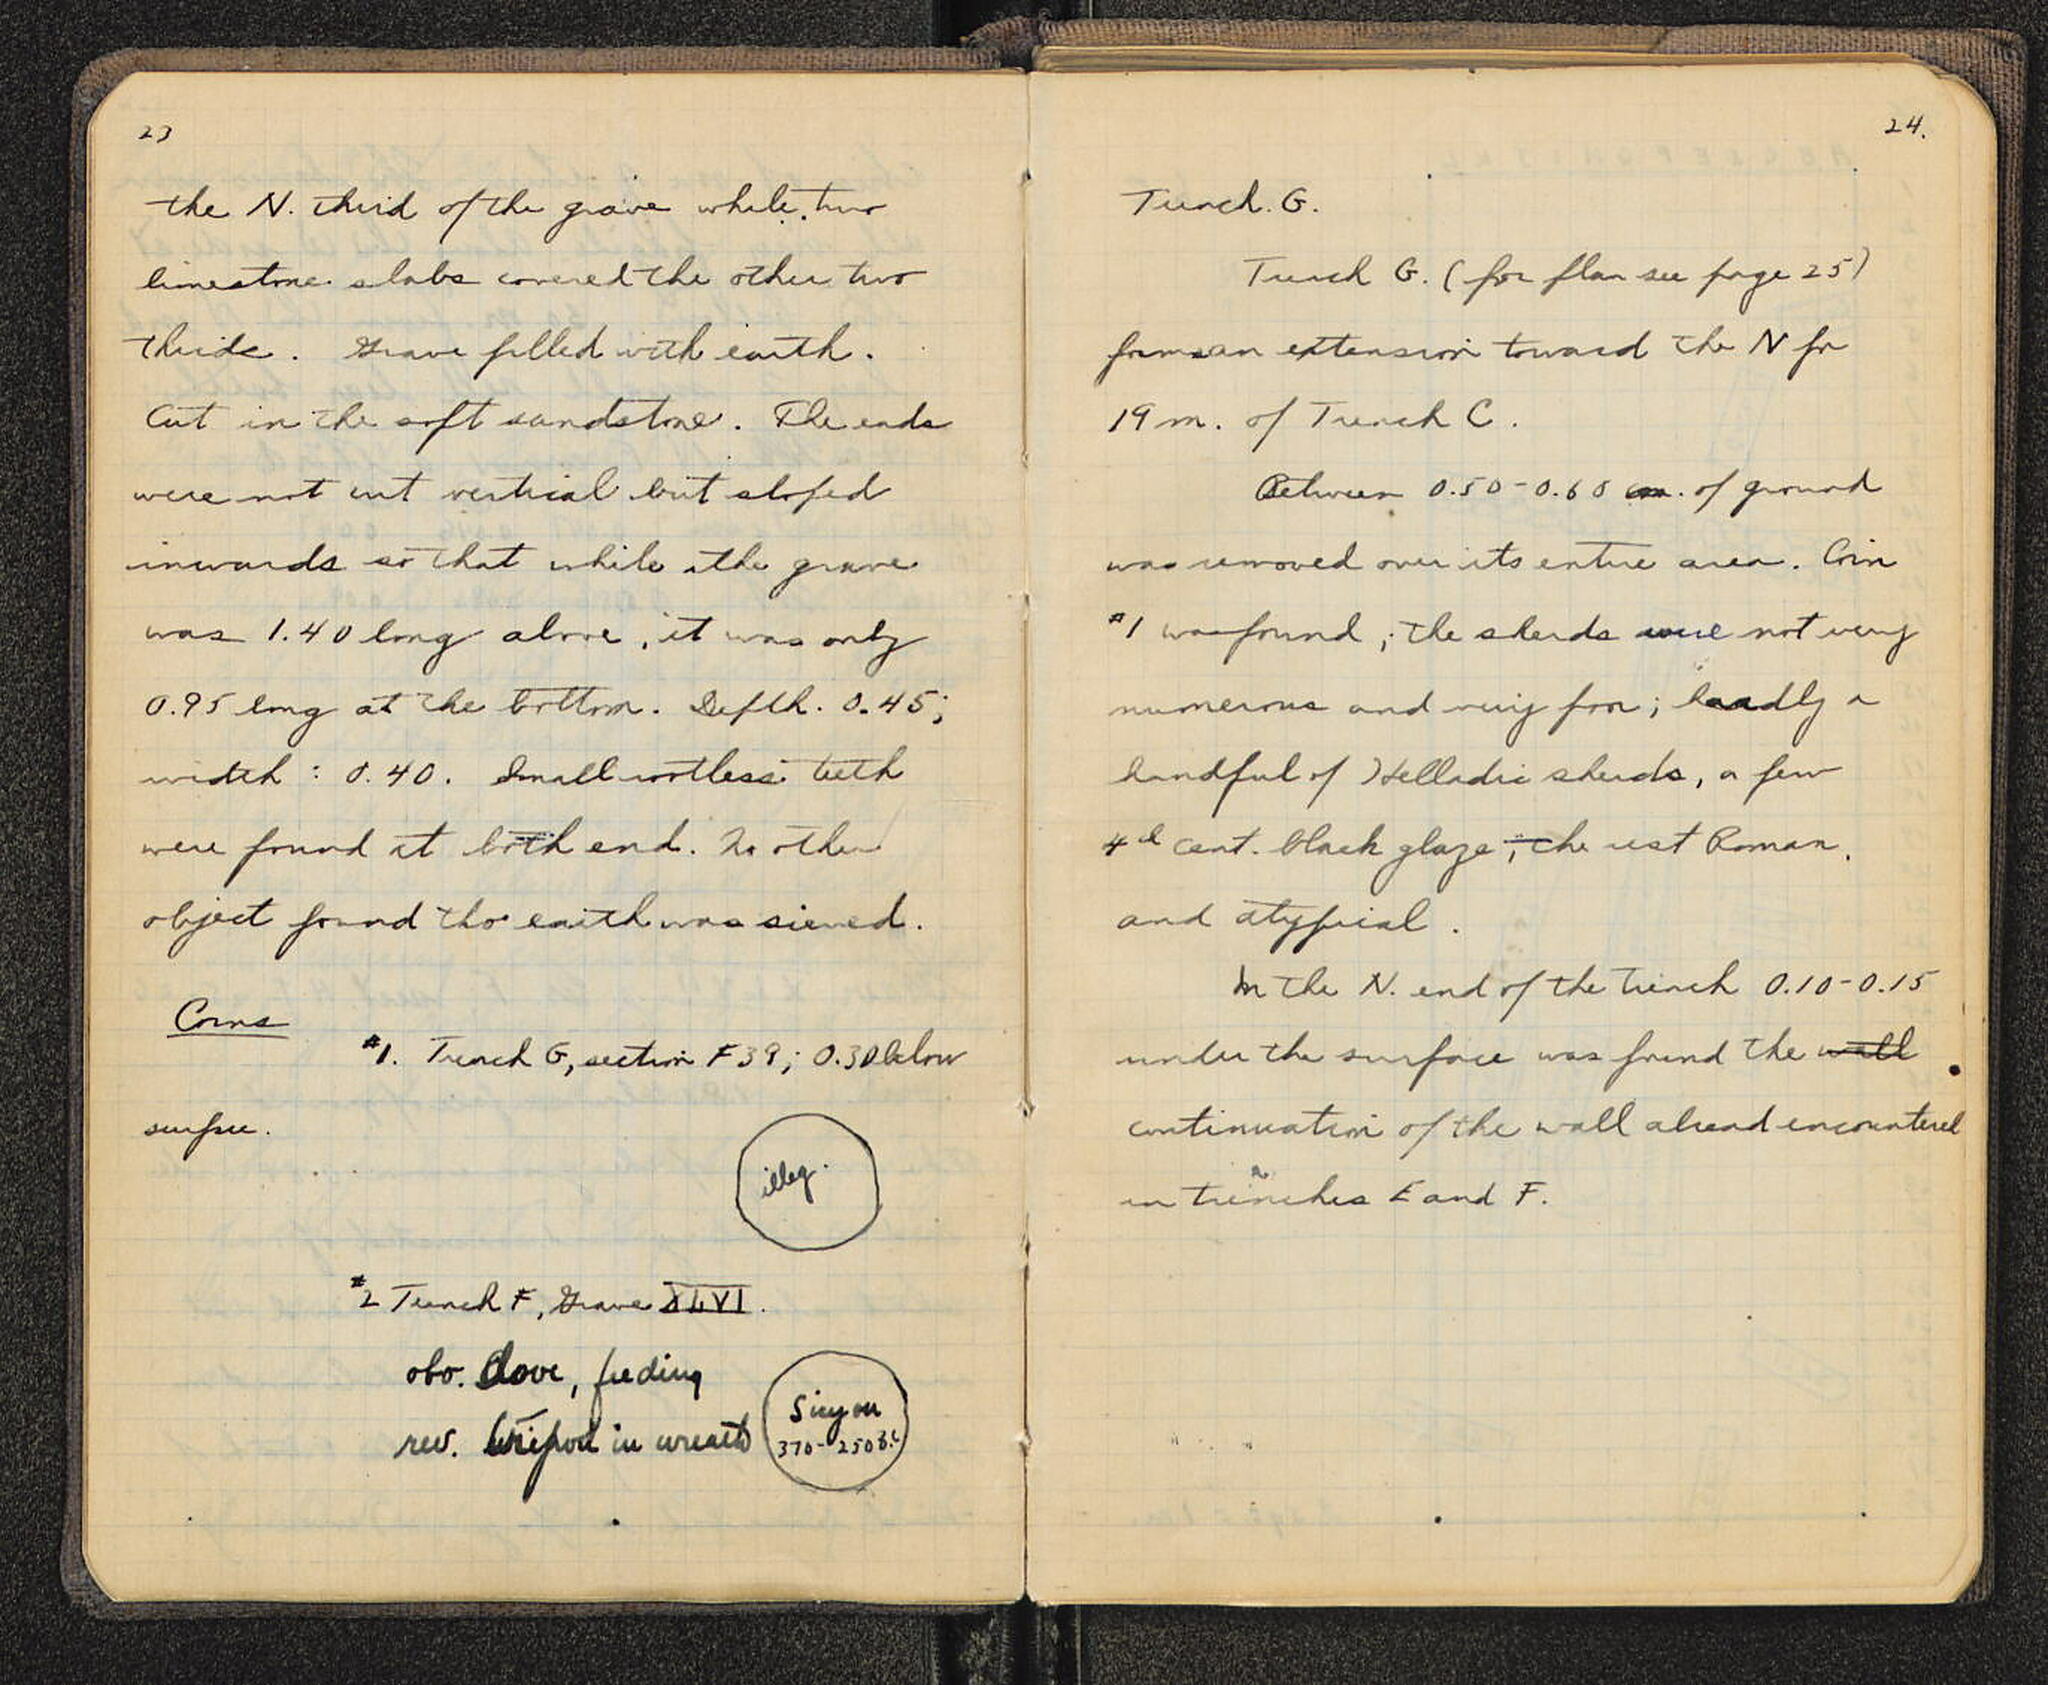 23
the N. third of the grave while two
limestone slabs covered the other two
thirds. Grave filled with earth.
Cut in the soft sandstone. The ends
were not cut vertical but sloped
inwards so that while the grave
was 1.40 long above, it was only
0.95 long at the bottom. Depth. 0.45;
width: 0.40. Small rootless teeth
were found at both end. No other
object found tho earth was sieved.
Coins
#1. Trench G, section F 39; 0.30 below
surface.
illeg.
#2 Trench F, Grave XLVI.
obv. Dove, feeding
rev. Tripod in wreath
Sicyon
370-250 B.C
24.
Trench. G.
Trench G. (for plan see page 25)
forms an extension toward the N for
19 m. of Trench C.
Between 0.50-0.60 m. of ground
was removed over its entire area. Coin
#1 was found; the sherds were not very
numerous and very poor; hardly a
handful of Helladic sherds, a few
4th cent. black glaze, the rest Roman.
and atypical.
In the N. end of the trench 0.10-0.15
under the surface was found the wall
continuation of the wall alread encountered
in trenches E and F.